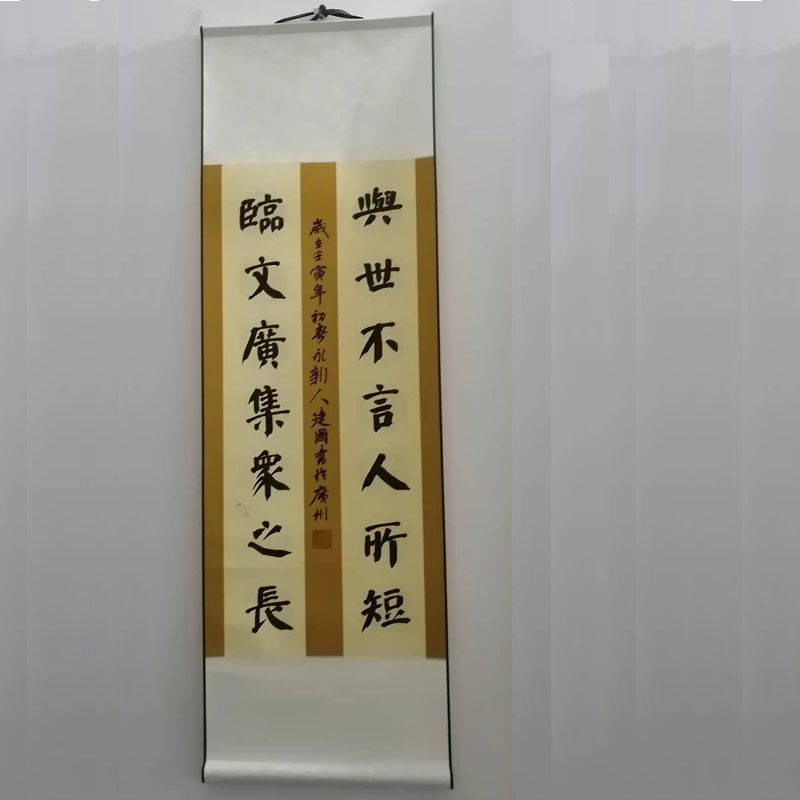 與世不言人所短
臨文廣集衆之長
歲在壬寅年初春永新人建國書於廣州